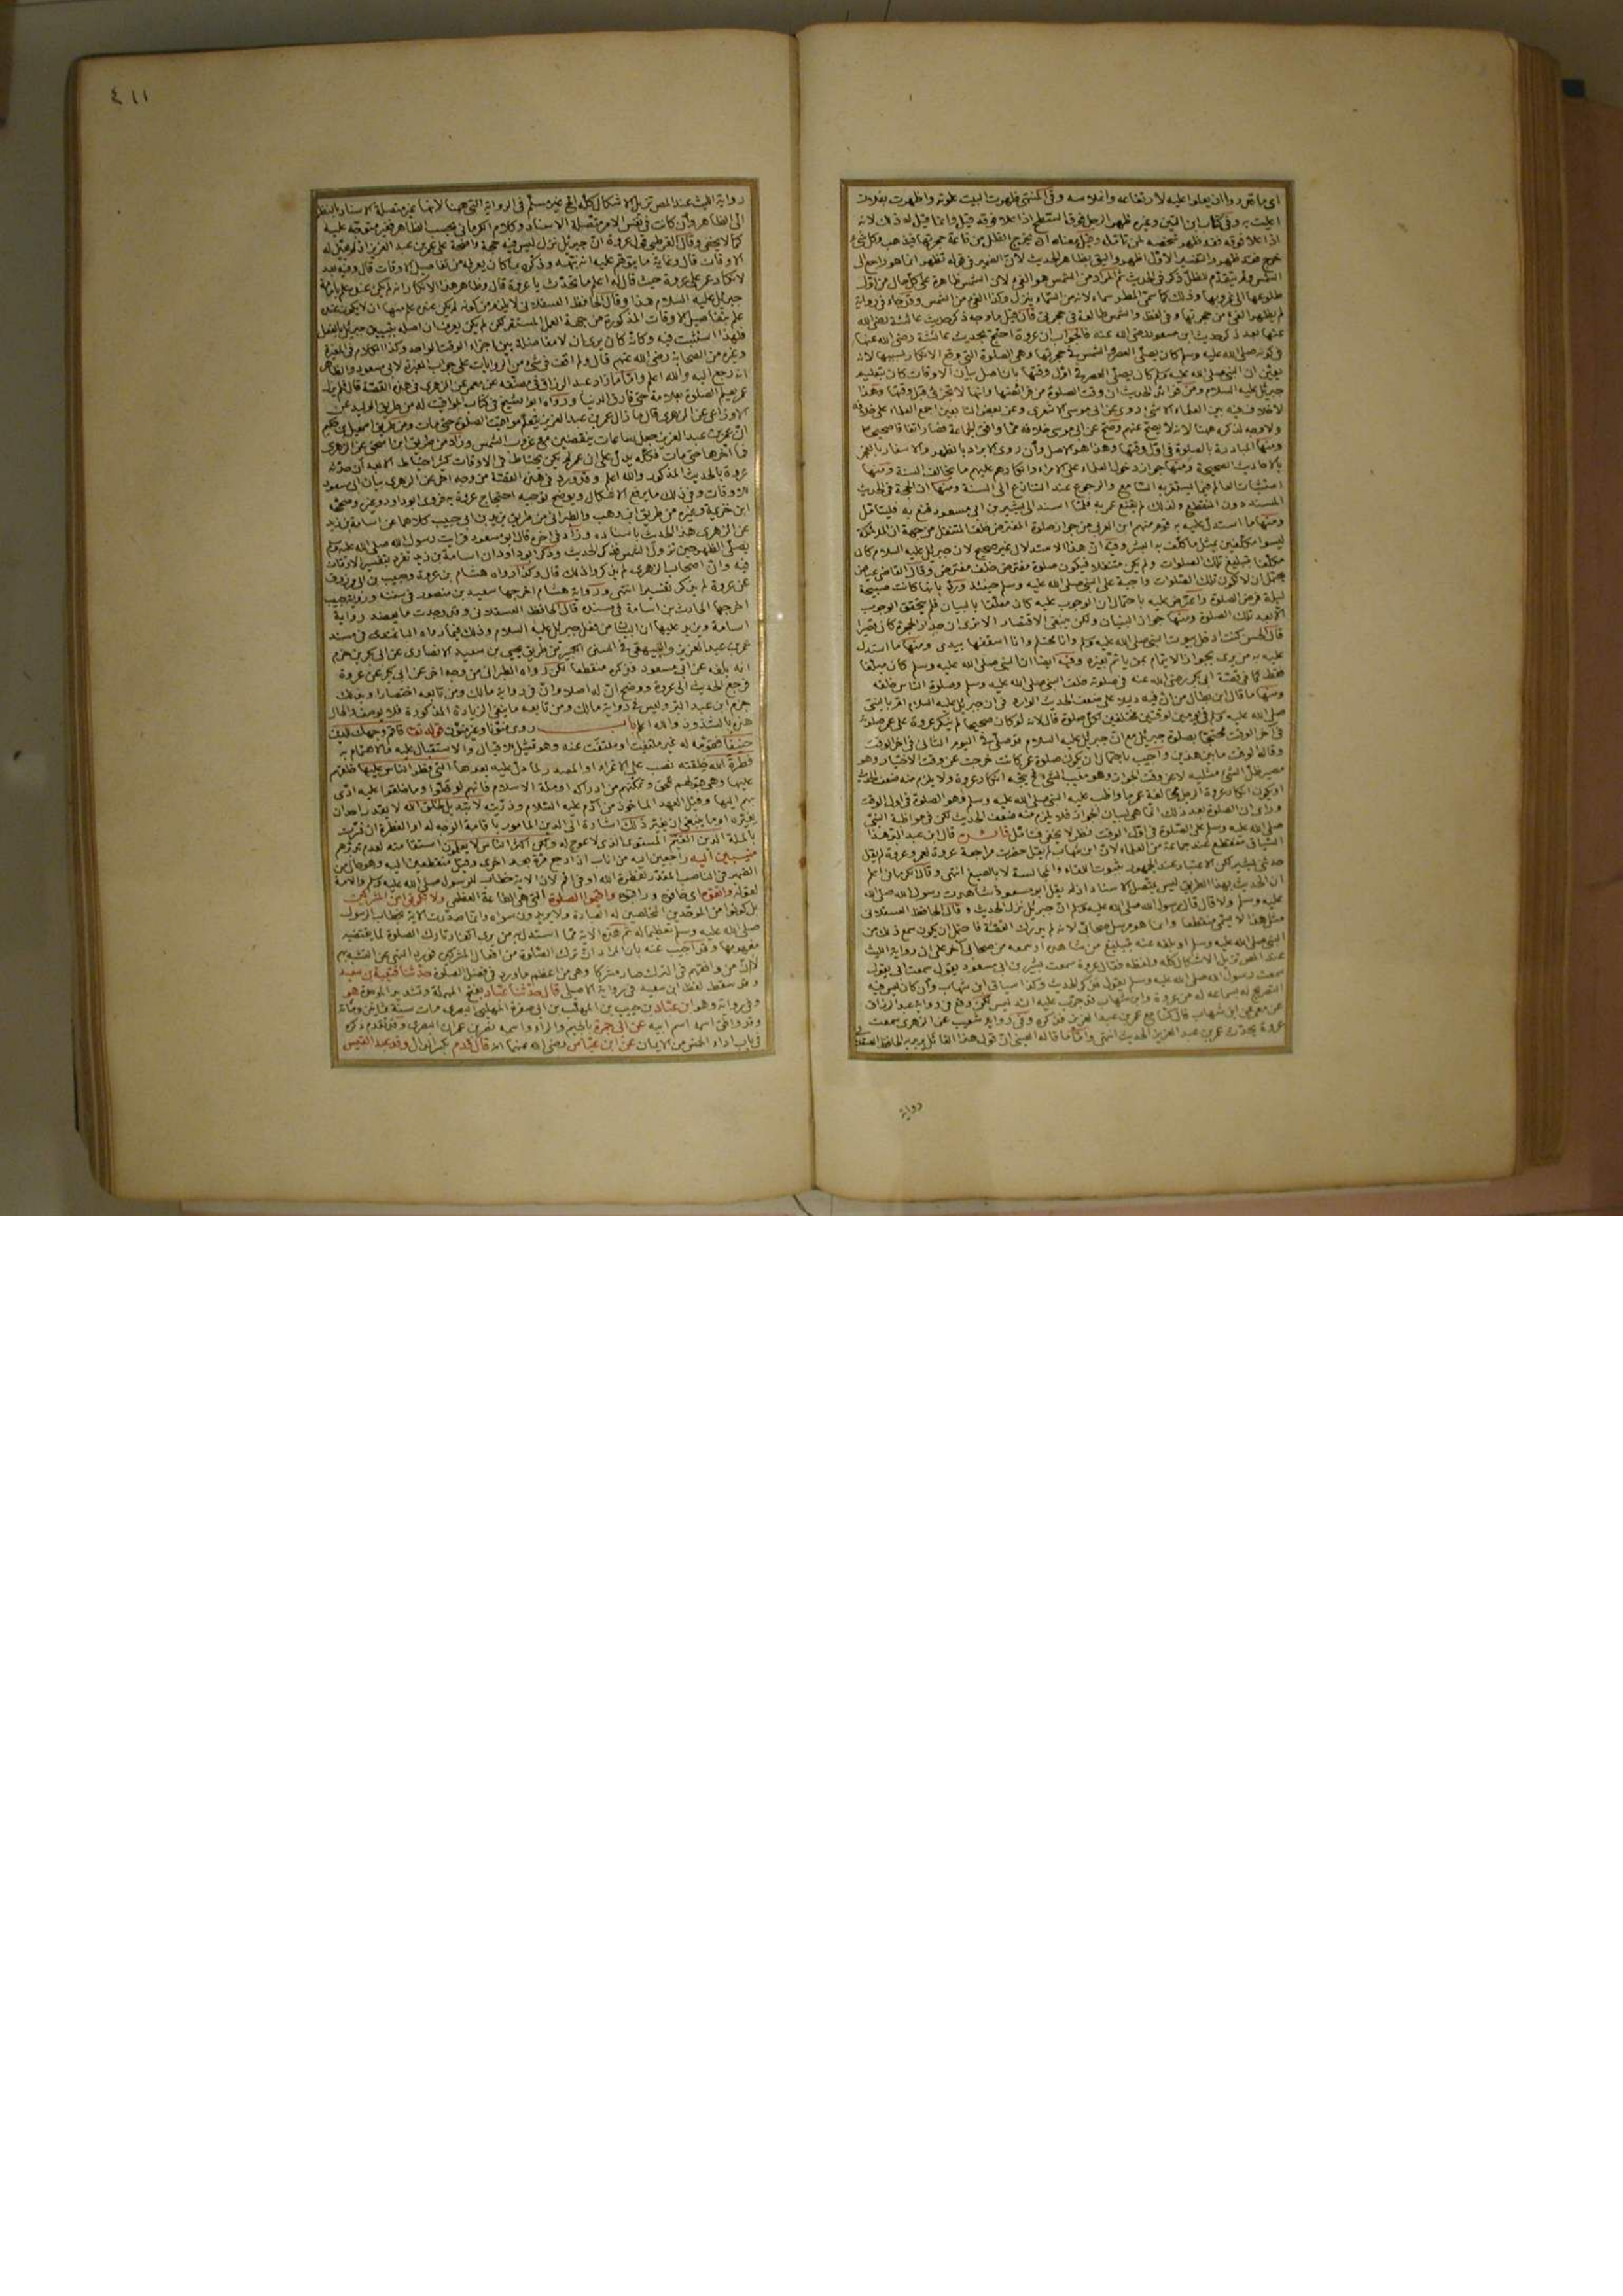 ٤١١
اى ما تقرر والن يعلوا عليه لارتفاعه
اعليت به وفي كتاب ابن التين وغيره ظهر الرجل فوق السطح اذا علا فوقه قيل وانما قيل له ذلك لانه
اذا علا فوقه فقد ظهر شخصه لمن تأمله وقيل معناه ان يخرج الظل من قاعة حجرتها فيذهب وكل شيء
خرج فقد ظهر والتفسير الاول اظهر واليق بظاهر الحديث لان الضمير في قوله تظهر انما هو راجع الى
الشمس ولم يتقدم للظل ذكر في الحديث
طلوعها الى غروبها وذلك كما سمى المطر سماء لانه من السماء ينزل وكذا الفيء من الشمس وقد جاء في رواية
لم يظهر الفيء من حجرتها وفي لفظ والشمس طالعة في حجرتي فان قيل ما وجه ذكر حديث عائشة رضي الله
عنها بعد ذكر حديث ابن مسعود رضي الله عنه فالجواب ان عروة احتج بحديث عائشة رضي الله عنها
في كونه صلى الله عليه وسلم كان يصلي العصر والشمس في حجرتها وهي الصلوة التي وقع الانكار بسببها لانه
يعني ان النبي صلى الله عليه وسلم كان يصلي العصر في اول وقتها بان اصل بيان الاوقات كان بتعليم
جبريل عليه السلام ومن فوائد الحديث ان وقت الصلوة من فرائضها وانها لا تجزئ قبل وقتها وهذا
لا خلاف فيه بين العلماء الا شيء روى عن ابي موسى الاشعري وعن بعض التابعين اجمع العلماء على خلافه
ولا وجه لذكره ههنا لانه لا يصح عنهم وصح عن ابي موسى خلافه مما وافق الجماعة فصار اتفاقا صحيحا
ومنها المبادرة بالصلوة في اول وقتها وهذا هو الاصل وان روى الابراد بالظهر والاسفار بالفجر
بالاحاديث الصحيحة ومنها جواز دخول العلماء على الامراء وانكارهم عليهم ما يخالف السنة ومنها
استثبات العالم فيما يستغربه السامع والرجوع عند التنازع الى السنة ومنها ان الحجة في الحديث
المسند دون المنقطع ولذلك لم يقنع عمر به فلما اسند الى بشير بن ابي مسعود قنع به فليتأمل
ومنها ما استدل عليه به قوم منهم ابن العربي من جواز صلوة المفترض خلف المتنفل من جهة ان الملائكة
ليسوا مكلفين بمثل ما كلف به البشر وفيه ان هذا الاستدلال غير صحيح لان جبريل عليه السلام كان
مكلفا بتبليغ تلك الصلوات ولم يكن متنفلا فيكون صلوة مفترض خلف مفترض وقال القاضي عياض
يحتمل ان لا تكون تلك الصلوات واجبة على النبي صلى الله عليه وسلم حينئذ ورد بانها كانت صبيحة
ليلة فرض الصلوة واعترض عليه باحتمال ان الوجوب عليه كان معلقا بالبيان فلم يتحقق الوجوب
الا بعد تلك الصلوة ومنها جواز البنيان ولكن ينبغي الاقتصار الا ترى ان جدار الحجرة كان قصيرا
قال الحسن كنت ادخل بيوت النبي صلى الله عليه وسلم وانا محتلم وانا اسقفها بيدي ومنها ما استدل
عليه به من يرى بجواز الايتمام بمن يأتم بغيره وفيه ايضا ان النبي صلى الله عليه وسلم كان مبلغا
فقط كما في قصة ابي بكر رضي الله عنه في صلوته خلف النبي صلى الله عليه وسلم وصلوة الناس خلفه
ومنها ما قال ابن بطال من ان فيه دليلا على ضعف الحديث الوارد في ان جبريل عليه السلام اقر بالنبي
صلى الله عليه وسلم في يومين لوقتين مختلفين لكل صلوة قال لانه لو كان صحيحا لم ينكر عروة على عمر صلوته
في آخر الوقت محتجا بصلوة جبريل مع ان جبريل عليه السلام قد صلى في اليوم الثاني في آخر الوقت
وقال الوقت ما بين هذين واجيب باحتمال ان تكون صلوة عمر كانت خرجت عن وقت الاختيار وهو
مصير ظل الشيء مثليه لا عن وقت الجواز وهو مغيب الشمس فح يتجه انكار عروة ولا يلزم منه ضعف الحديث
او يكون انكار عروة لاجل مخالفة عمر ما واظب عليه النبي صلى الله عليه وسلم وهو الصلوة في اول الوقت
وراى ان الصلوة بعد ذلك انما هي لبيان الجواز فلا يلزم منه ضعف الحديث لكن في مواظبة النبي
صلى الله عليه وسلم على الصلوة في اول الوقت نظر لا يخفى فتأمل فائدة قال ابن عبد البر هذا
السياق منقطع عند جماعة من العلماء لان ابن شهاب لم يقل حضرت مراجعة عروة لعمر وعروة لم يقل
حدثني بشير لكن الاعتبار عند الجمهور بثبوت اللقاء والمجالسة لا بالصيغ انتهى وقال الكرماني اعلم
ان الحديث بهذا الطريق ليس بمتصل الاسناد اذ لم يقل ابو مسعود شاهدت رسول الله صلى الله
عليه وسلم ولا قال قال رسول الله صلى الله عليه وسلم ان جبريل نزل الحديث وقال الحافظ العسقلاني
مثل هذا لا يسمى منقطعا وانما هو مرسل صحابي لانه لم يدرك القصة فاحتمل ان يكون سمع ذلك من
النبي صلى الله عليه وسلم او بلغه عنه بتبليغ من شاهده او سمعه من صحابي آخر على ان رواية الليث
عند المص تزيل الاشكال كله ولفظه فقال عروة سمعت بشير بن ابي مسعود يقول سمعت ابي يقول
سمعت رسول الله صلى الله عليه وسلم يقول فذكر الحديث وكذا سياق ابن شهاب وان كان ليس فيه
التصريح له بسماعه له من عروة وابن شهاب قد جرب عليه التدليس لكن وقع في رواية عبد الرزاق
عن معمر عن ابن شهاب قال كنا مع عمر بن عبد العزيز فذكره وفي رواية شعيب عن الزهري سمعت
عروة يحدث عمر بن عبد العزيز الحديث انتهى واما ما قاله العيني ان قول هذا القائل يريد به الحافظ
رواية
رواية الليث عند المص تزيل الاشكال كله الخ غير مسلم في الرواية التي ههنا لانها غير متصلة الاسناد بالنظر
الى الظاهر وان كانت في نفس الامر متصلة الاسناد وكلام الكرماني بحسب الظاهر فغير متوجه عليه
كما لا يخفى وقال القرطبي قول عروة ان جبريل نزل ليس فيه حجة واضحة على عمر بن عبد العزيز اذ لم يعين له
الاوقات قال وغاية ما يتوهم عليه انه نبهه وذكره بما كان يعرفه من تفاصيل الاوقات قال وفيه بعد
لانكار عمر على عروة حيث قال له اعلم ما تحدث يا عروة قال وظاهر هذا الانكار انه لم يكن عنده علم بامامة
جبريل عليه السلام هذا وقال الحافظ العسقلاني لا يلزم من كونه لم يكن عنده علم منها ان لا يكون عنده
علم بتفاصيل الاوقات المذكورة من جهة العمل المستمر لكن لم يكن يعرف ان اصله بتبيين جبريل بالفعل
فلهذا استثبت فيه وكانه كان يرى ان لا مفاضلة بين اجزاء الوقت الواحد وكذا الكلام في المغيرة
وغيره من الصحابة رضي الله عنهم قال ولم اقف في شيء من الروايات على جواب المغيرة لابي مسعود والظاهر
انه رجع اليه والله اعلم واما ما زاد عبد الرزاق في مصنفه عن معمر عن الزهري في هذه القصة قال فلم يزل
عمر يعلم الصلوة بعلامة حتى فارق الدنيا ورواه ابو الشيخ في كتاب المواقيت له من طريق الوليد عن
الاوزاعي عن الزهري قال ما زال عمر بن عبد العزيز يتعلم مواقيت الصلوة حتى مات ومن طريق اسمعيل بن حكيم
ان عمر بن عبد العزيز جعل ساعات ينقضين مع غروب الشمس وزاد من طريق ابن اسحق عن الزهري
فما اخرها حتى مات فكله يدل على ان عمر لم يكن يحتاط في الاوقات كثير احتياط الا بعد ان حدثه
عروة بالحديث المذكور والله اعلم وقد ورد في هذه القصة من وجه آخر عن الزهري بيان ابي مسعود
الاوقات وفي ذلك ما يرفع الاشكال ويوضح توجيه احتجاج عروة به فروى ابو داود وغيره وصححه
ابن خزيمة وغيره من طريق ابن وهب والطبراني من طريق يزيد بن ابي حبيب كلاهما عن اسامة بن زيد
عن الزهري هذا الحديث باسناده وزاد في آخره قال ابو مسعود فرايت رسول الله صلى الله عليه وسلم
يصلي الظهر حين تزول الشمس فذكر الحديث وذكر ابو داود ان اسامة بن زيد تفرد بتفسير الاوقات
فيه وان اصحاب الزهري لم يذكروا ذلك قال وكذا رواه هشام بن عروة وحبيب بن ابي مرزوق
عن عروة لم يذكر تفسيرا انتهى ورواية هشام اخرجها سعيد بن منصور في سننه ورواية حبيب
اخرجها الحارث بن اسامة في مسنده قال الحافظ العسقلاني وقد وجدت ما يعضد رواية
اسامة ويزيد عليها ان البيان من فعل جبريل عليه السلام وذلك فيما رواه الباغندي في مسند
عمر بن عبد العزيز والبيهقي في السنن الكبير من طريق يحيى بن سعيد الانصاري عن ابي بكر بن حزم
انه بلغه عن ابي مسعود فذكره منقطعا لكن رواه الطبراني من وجه آخر عن ابي بكر عن عروة
فرجع الحديث الى عروة ووضح ان له اصلا وان في رواية مالك ومن تابعه اختصارا وبذلك
جزم ابن عبد البر وليس في رواية مالك ومن تابعه ما ينفي الزيادة المذكورة فلا يوصف والحال
هذه بالشذوذ والله اعلم باب روى منونا وغير منون قوله تعالى فاقم وجهك للدين
حنيفا فقومه له غير ملتفت او ملتفت عنه وهو تمثيل للاقبال والاستقبال عليه والاهتمام به
فطرة الله خلقته نصب على الاغراء او المصدر لما دل عليه بعدها التي فطر الناس عليها خلقهم
عليها وهي قبولهم للحق وتمكنهم من ادراكه او ملة الاسلام فانهم لو خلوا وما خلقوا عليه ادى
بهم اليها وقيل العهد الماخوذ من آدم عليه السلام وذريته لا تبديل لخلق الله لا يقدر احد ان
يغيره او ما ينبغي ان يغير ذلك اشارة الى الدين المامور باقامة الوجه له او الفطرة ان فسرت
بالملة الدين القيم المستوى الذي لا عوج له ولكن اكثر الناس لا يعلمون استقامته لعدم تدبرهم
منيبين اليه راجعين اليه من اناب اذا رجع مرة بعد اخرى وقيل منقطعين اليه وهو حال من
الضمير في الناصب المقدر لفطرة الله او في اقم لان الآية خطاب للرسول صلى الله عليه وسلم والامة
لقوله واتقوه اى خافوه وراقبوه واقيموا الصلوة التي هي الطاعة العظمى ولا تكونوا من المشركين
بل كونوا من الموحدين المخلصين له العبادة ولا يريدون سواه وانما صدرت الآية بخطاب الرسول
صلى الله عليه وسلم تعظيما له ثم هذه الآية مما استدل به من يرى اكفار تارك الصلوة لما يقتضيه
مفهومها وقد اجيب عنه بان المراد ان ترك الصلوة من افعال المشركين فورد النهي عن التشبه بهم
لا ان من وافقهم في الترك صار مشركا وهي من اعظم ما ورد في فضل الصلوة حدثنا قتيبة بن سعيد
وقد سقط لفظ ابن سعيد في رواية الاصيلي قال حدثنا عباد بفتح المهملة وتشديد الموحدة هو
وفي رواية وهو ابن عباد بن حبيب بن المهلب بن ابي صفرة المهلبي البصري مات سنة ثمانين ومائة
وقد وافق اسمه اسم ابيه عن ابي جمرة بالجيم والراء واسمه نصر بن عمران البصري وقد تقدم ذكره
في باب اداء الخمس من الايمان عن ابن عباس رضي الله عنهما انه قال قدم بكسر الدال وفد عبد القيس